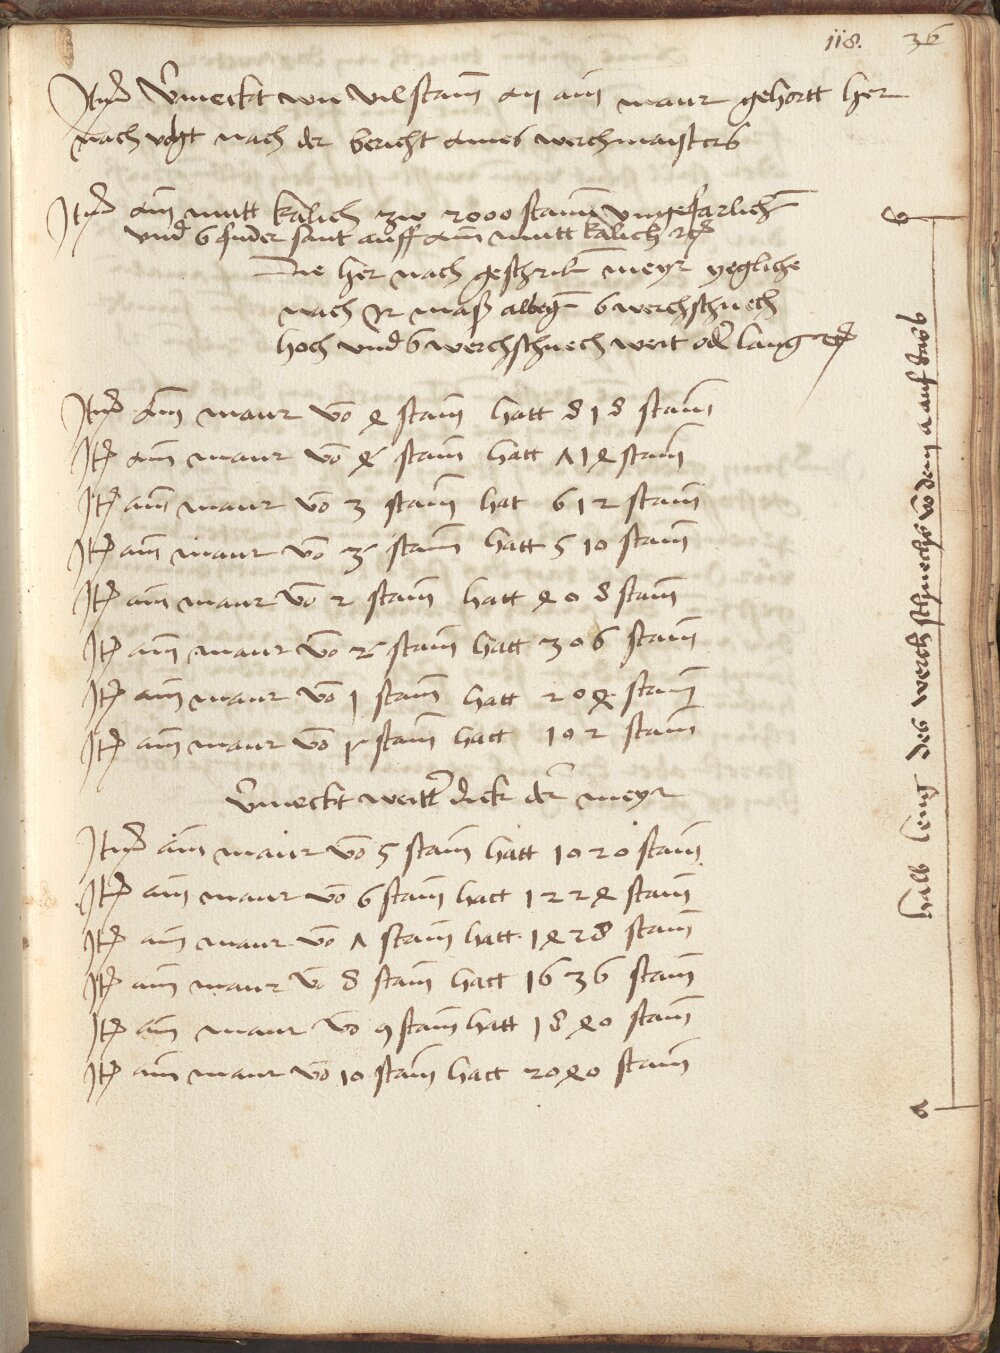 118. 36
Item Vermerckt wie vil stain an ain maur gehortt her
nach volgt nach der bericht aines werchmaisters
Item ain mutt kalich zw 2000 stainn vngefarlich
vnd 6 fueder sant auff ain mutt kalich etc
Die her nach geschriben meyr yegliche
nach Ir mass albeg 6 werchschuech
hoch vnd 6 werchschuech weit oder lang etc
Item Ain maur von 4 stain hatt 818 stain
Item ain maur von 4 stain hatt 714 stain
Item ain maur von 3 stain hat 612 stain
Item ain maur von 3 stain hatt 510 stain
Item ain maur von 2 stain hatt 408 stain
Item ain maur von 2 stain hatt 306 stain
Item ain maur von 1 stain hatt 204 stain
Item ain maur von 1 stain hatt 102 stain
Vermerckt weitter dick der meyr
Item ain maur von 5 stain hatt 1020 stain
Item ain maur von 6 stain hatt 1224 stain
Item ain maur von 7 stain hatt 1428 stain
Item ain maur von 8 stain hatt 1636 stain
Item ain maur von 9 stain hatt 1840 stain
Item ain maur von 10 stain hatt 2040 stain
a
halb leng des werch schuechs von dem a auf das b
b